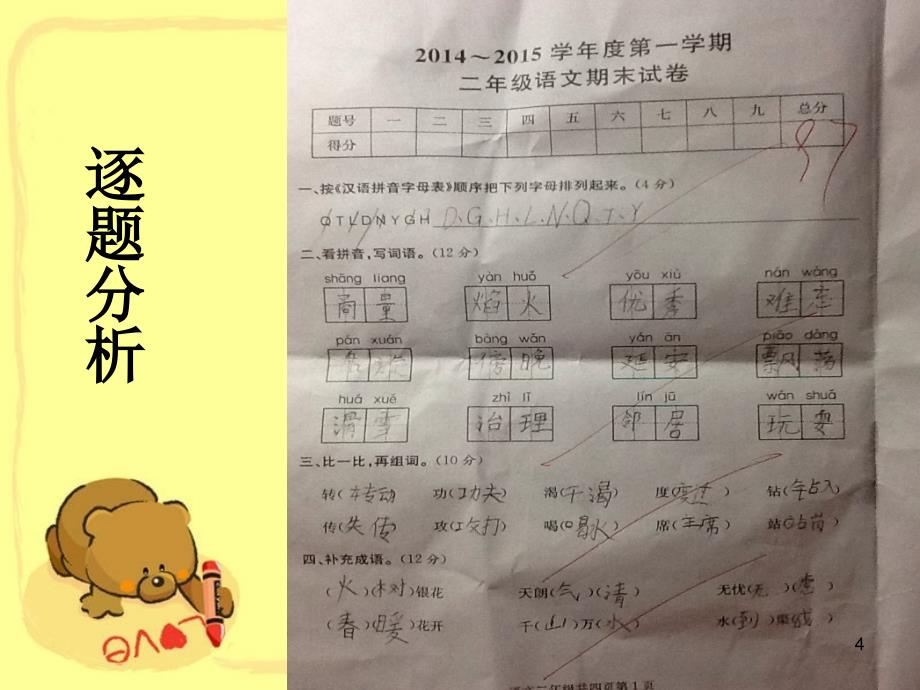 逐题分析
2014～2015 学年度第一学期
二年级语文期末试卷
题号 一 二 三 四 五 六 七 八 九 总分
得分 97
一、按《汉语拼音字母表》顺序把下列字母排列起来。(4分)
Q T L D N Y G H D、G、H、L、N、Q、T、Y
二、看拼音,写词语。(12分)
shāng liang yàn huǒ yōu xiù nán wàng
商量 焰火 优秀 难忘
pán xuán bàng wǎn yán ān piāo dàng
盘旋 傍晚 延安 飘荡
huá xuě zhì lǐ lín jū wán shuǎ
滑雪 治理 邻居 玩耍
三、比一比,再组词。(10分)
转(转动) 功(功夫) 渴(干渴) 度(度过) 钻(钻入)
传(失传) 攻(攻打) 喝(喝水) 席(主席) 站(站岗)
四、补充成语。(12分)
(火)(树)银花 天朗(气)(清) 无忧(无)(虑)
(春)(暖)花开 千(山)万(水) 水(到)渠(成)
语文二年级共四页第1页
LOVE
4